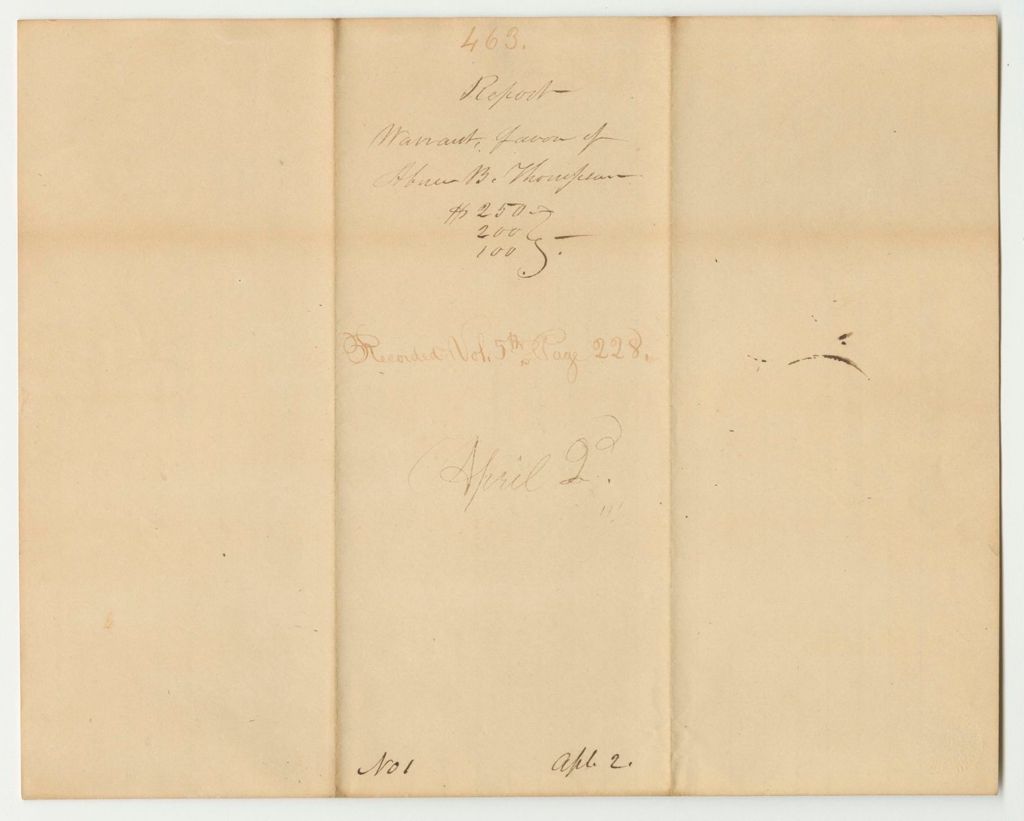 463.
Report
Warrant, favor of
Abner B. Thompson
$ 250
200
100
Recorded Vol. 5th Page 228.
April 2d.
No 1 Apl. 2.